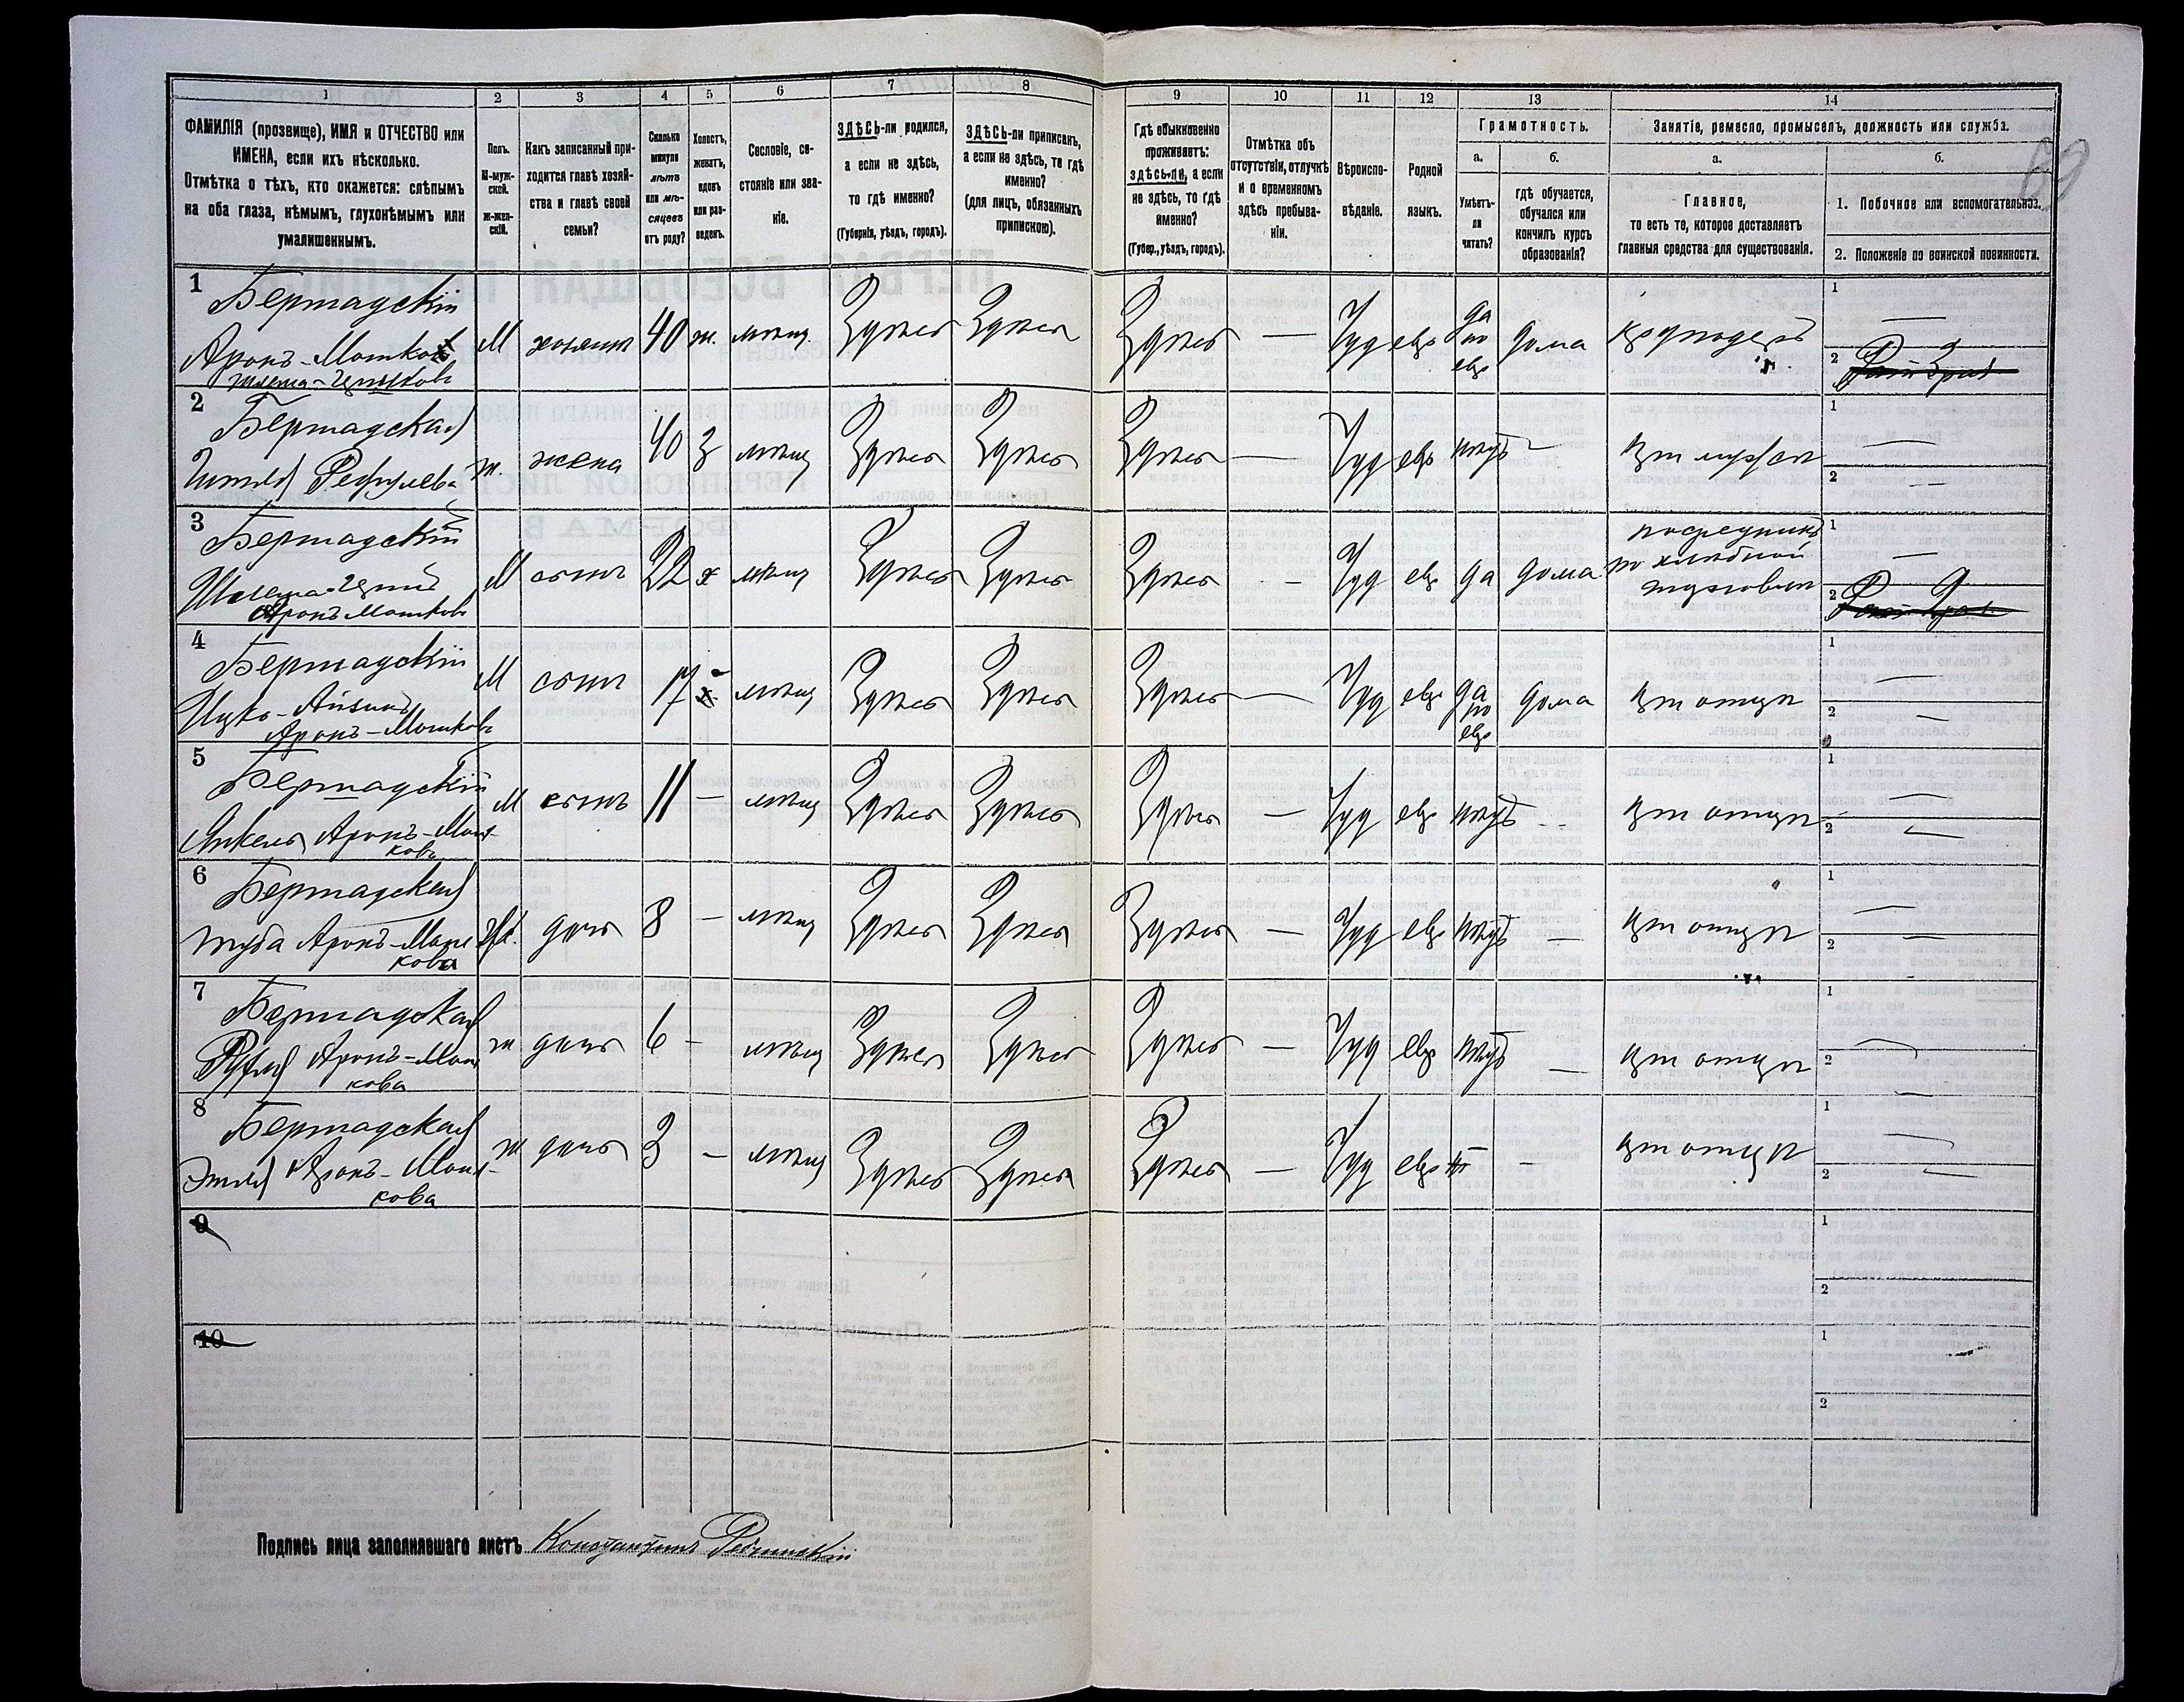 1 2 3 4 5 6 7 8 9 10 11 12 13 14
ФАМИЛІЯ (прозвище), ИМЯ и ОТЧЕСТВО или
ИМЕНА, если ихъ нѣсколько.
Отмѣтка о тѣхъ, кто окажется: слѣпымъ
на оба глаза, нѣмымъ, глухонѣмымъ или
умалишеннымъ.
Полъ.
М-муж-
ской.
ж-жен-
скій.
Какъ записанный при-
ходится главѣ хозяй-
ства и главѣ своей
семьи?
Сколько
минуло
лѣтъ
или мѣ-
сяцевъ
отъ роду?
Холостъ,
женатъ,
вдовъ
или раз-
веденъ.
Сословіе, со-
стояніе или зва-
ніе.
ЗДѢСЬ-ли родился,
а если не здѣсь,
то гдѣ именно?
(Губернія, уѣздъ, городъ).
ЗДѢСЬ-ли приписанъ,
а если не здѣсь, то гдѣ
именно?
(для лицъ, обязанныхъ
припискою).
Гдѣ обыкновенно
проживаетъ:
здѣсь-ли, а если
не здѣсь, то гдѣ
именно?
(Губер., уѣздъ, городъ).
Отмѣтка объ
отсутствіи, отлучкѣ
и о временномъ
здѣсь пребыва-
ніи.
Вѣроиспо-
вѣданіе.
Родной
языкъ.
Грамотность.
а.
Умѣетъ-
ли
читать?
б.
гдѣ обучается,
обучался или
кончилъ курсъ
образованія?
Занятіе, ремесло, промыселъ, должность или служба.
а.
Главное,
то есть то, которое доставляетъ
главныя средства для существованія.
б.
1. Побочное или вспомогательное.
2. Положеніе по воинской повинности.
69
1 Бершадскій
Аронъ-Мошко
М хозяинъ 40 ж. мѣщ. Здѣсь Здѣсь Здѣсь — Іуд евр да по евр дома
2 Бершадская
ж. жена 40 з мѣщ Здѣсь Здѣсь Здѣсь — Іуд евр нѣтъ — при мужѣ
3 Бершадскій
Аронъ-Мошковъ
М сынъ 22 х мѣщ Здѣсь Здѣсь Здѣсь — Іуд евр да дома
посредникъ
по хлѣбной
торговли
4 Бершадскій
Ицко-Айзикъ
Аронъ-Мошковъ
М сынъ 17 х мѣщ Здѣсь Здѣсь Здѣсь — Іуд евр да по евр дома при отцѣ
5 Бершадскій
Янкель Аронъ-Мош-
ковъ
М сынъ 11 — мѣщ Здѣсь Здѣсь Здѣсь — Іуд евр нѣтъ — при отцѣ
6 Бершадская
Туба Аронъ-Мош-
кова
Ж. дочь 8 — мѣщ Здѣсь Здѣсь Здѣсь — Іуд евр нѣтъ — при отцѣ
7 Бершадская
Рухля Аронъ-Мош-
кова
ж дочь 6 — мѣщ Здѣсь Здѣсь Здѣсь — Іуд евр нѣтъ — при отцѣ
8 Бершадская
Этля Аронъ-Мош-
кова
ж дочь 3 — мѣщ Здѣсь Здѣсь Здѣсь — Іуд евр — при отцѣ
9
10
Подпись лица заполнявшаго листъ Константинъ